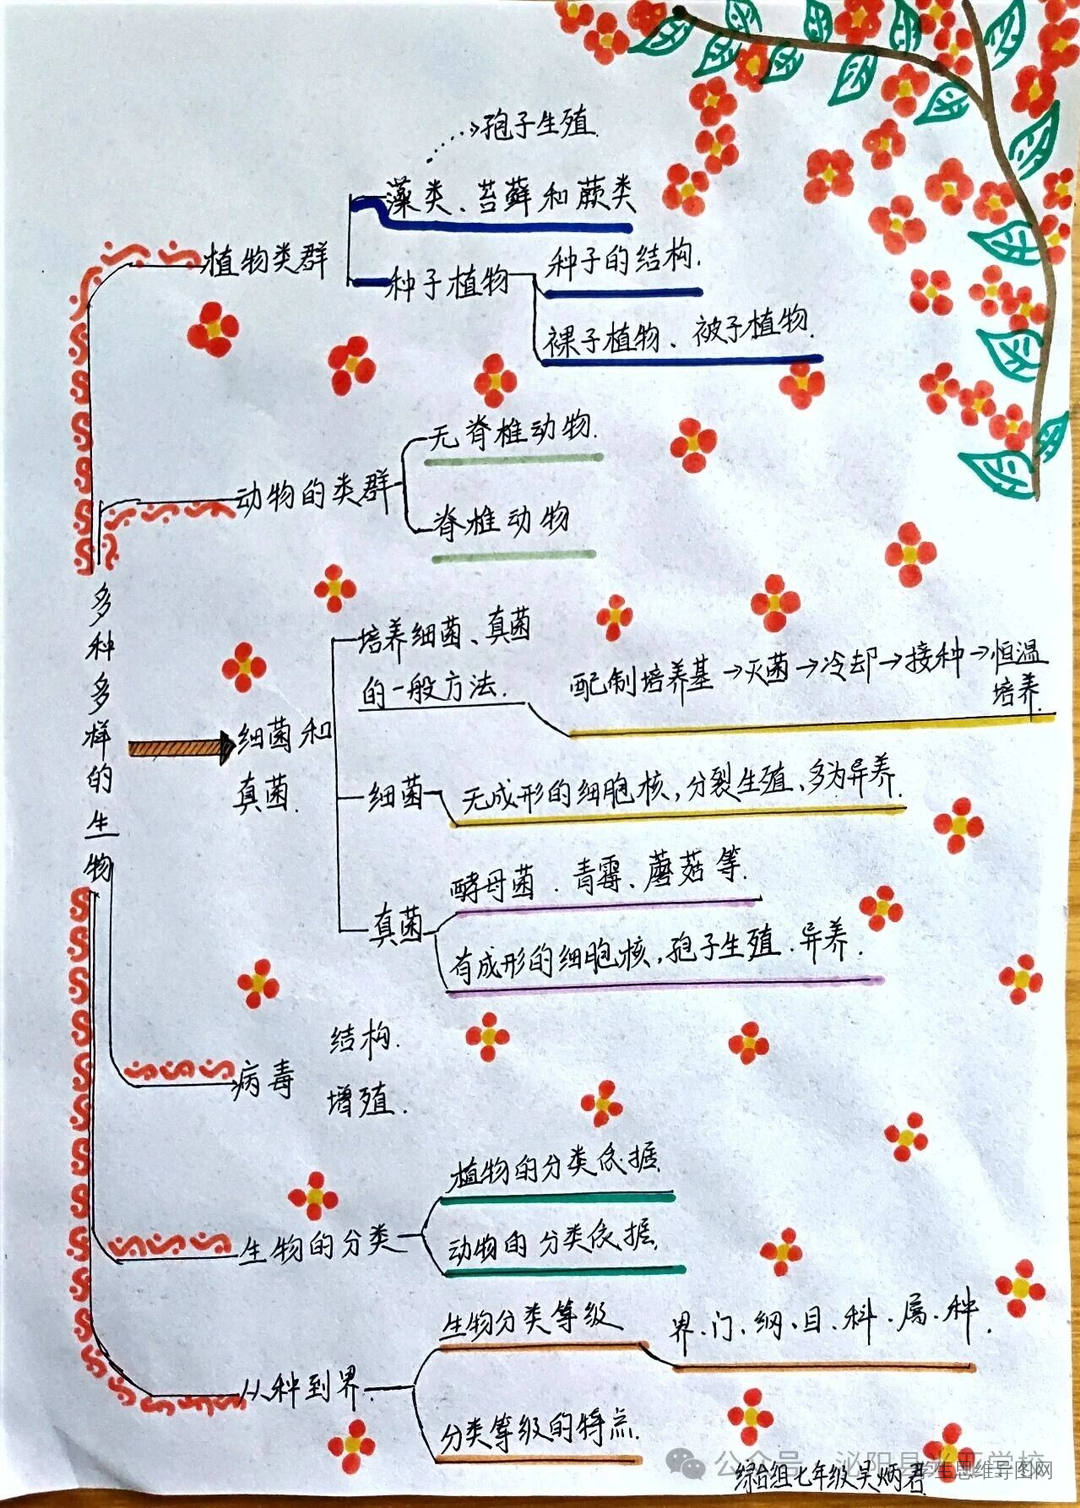 孢子生殖.
藻类、苔藓和蕨类
植物类群
种子植物
种子的结构.
裸子植物、被子植物.
无脊椎动物.
动物的类群
脊椎动物
多种多样的生物
培养细菌、真菌
的一般方法.
配制培养基→灭菌→冷却→接种→恒温
培养.
细菌和
真菌.
细菌
无成形的细胞核,分裂生殖、多为异养.
酵母菌.青霉、蘑菇等.
真菌
有成形的细胞核,孢子生殖.异养.
结构.
病毒
增殖.
植物的分类依据.
生物的分类
动物的分类依据.
生物分类等级
界、门、纲、目、科、属、种.
从种到界
分类等级的特点.
公众号
泌阳县光亚学校
学生思维导图网
七年级吴炳君